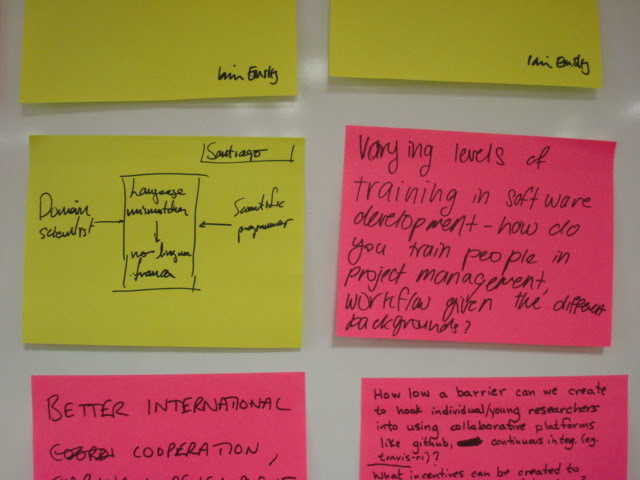 Iain Emsley
Iain Emsley
Santiago
Domain
scientist
Language
mismatches
no lingua
franca
Scientific
programmer
Varying levels of
training in software
development - how do
you train people in
project management,
workflow given the different
backgrounds?
BETTER INTERNATIONAL
COOPERATION,
How low a barrier can we create
to hook individual/young researchers
into using collaborative platforms
like github, continuous integ. (eg.
travis-ci)?
What incentives can be created to